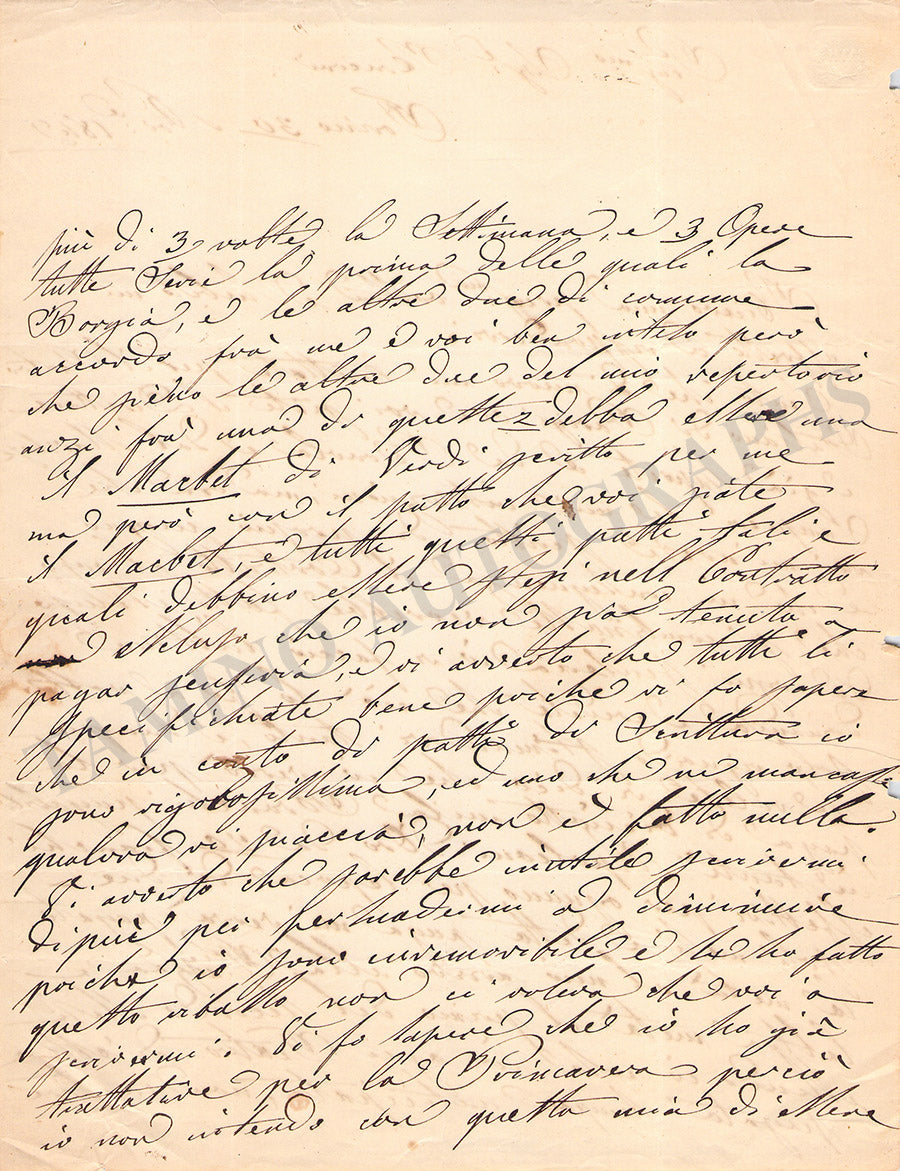 più di 3 volte la Settimana, e 3 Opere
tutte Serie la prima delle quali la
Borgia, e le altre due di comune
accordo frà me e voi ben inteso però
che siéno le altre due del mio repertorio
anzi frà una di queste 2 debba essere una
il Macbet di Verdi scritto per me
ma però con il patto che voi
il Macbet, e tutti questi patti tali e
quali debbino essere stesi nell Contratto
che io non sia tenuta a
pagar senseria, e vi avverto che tutti li
specifichiate bene poiche vi fo sapere
che in conto di patti di Scrittura io
sono rigorosissima, ed uno che ne mancasse
qualora vi piaccia, non è fatto nulla.
Vi avverto che sarebbe inutile scrivermi
di più per persuadermi a diminuire
poiche io sono irremovibile e ho fatto
questo ribasso non ci voleva che voi a
scrivermi. Vi fo sapere che io ho già
trattative per la Primavera perciò
io non intendo con questa mia di essere
TAMINO AUTOGRAPHS